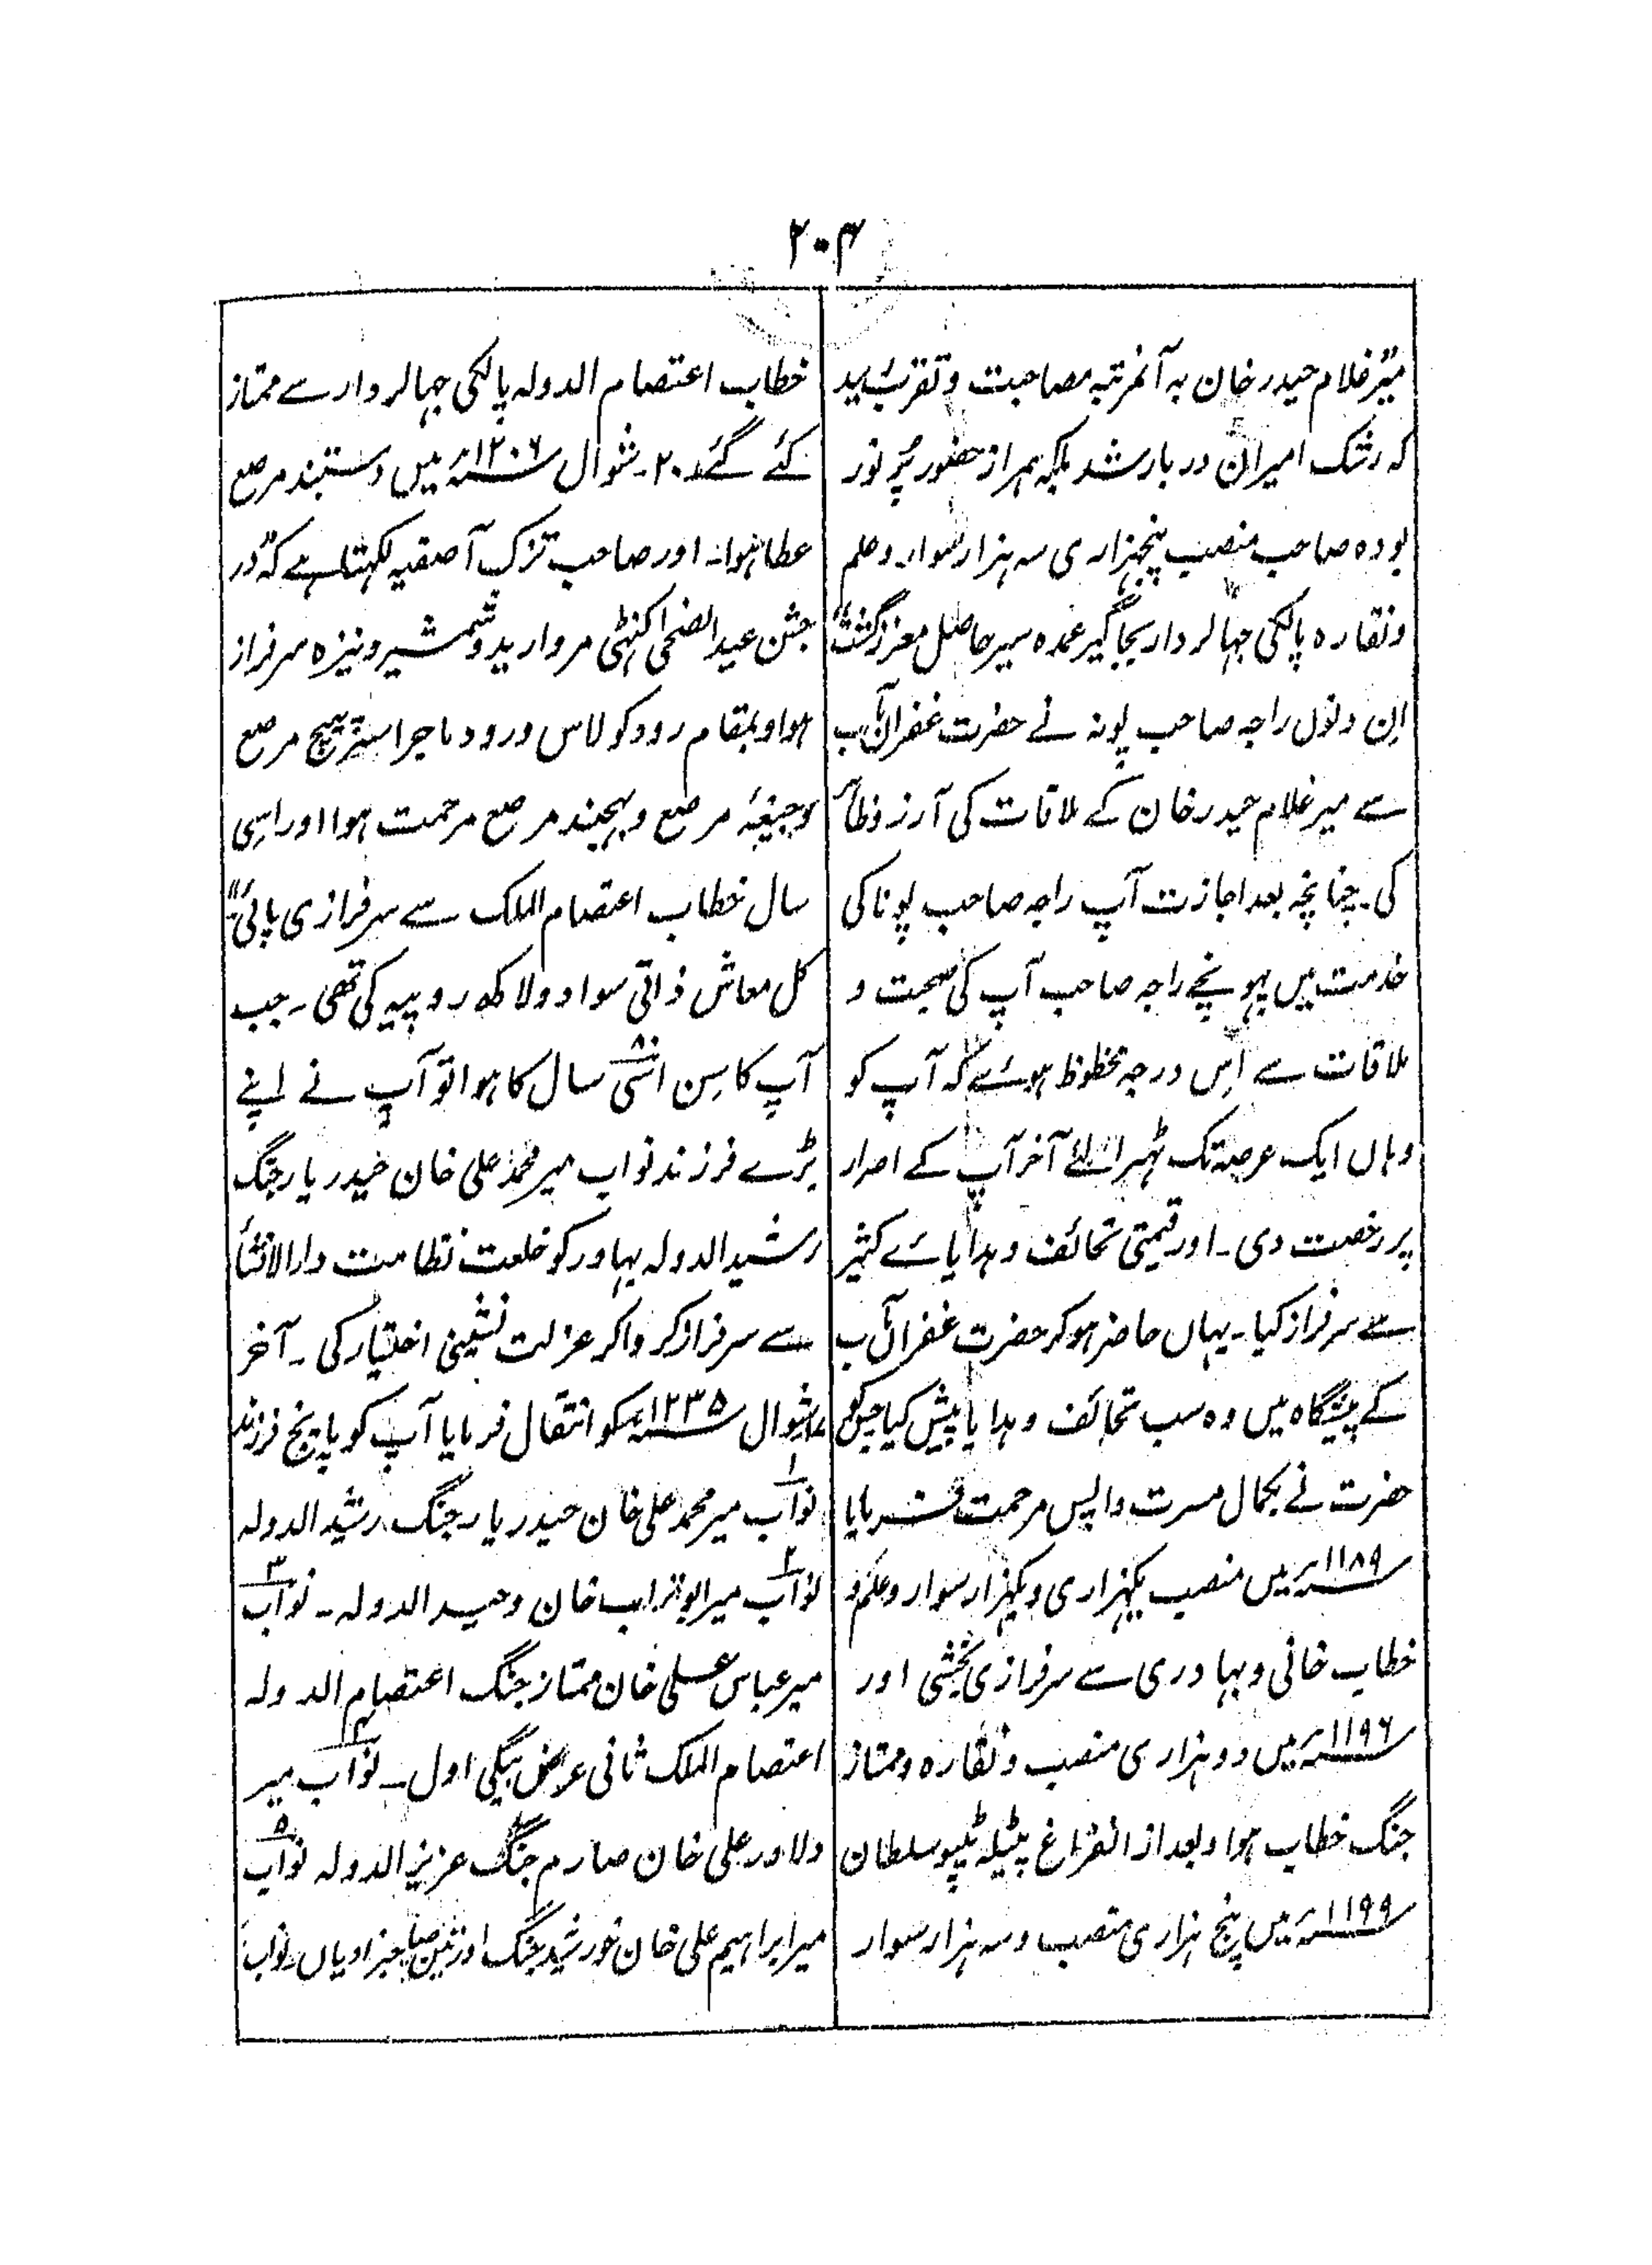 ۲۰۴
میر غلام حیدر خان بہ آنمرتبہ مصاحبت و تقرب رسید
کہ رشک امیران دربار شد بلکہ ہمراز حضور پر نور
بودہ صاحب منصب پنجہزاری سہ ہزار سوار و علم
و نقارہ پالکی جہالردار بجاگیر عمدہ سیر حاصل معزز گشت"
اِن دنوں راجہ صاحب پونہ نے حضرت غفران مآب
سے میر غلام حیدر خان کے ملاقات کی آرزو ظاہر
کی۔ چنانچہ بعد اجازت آپ راجہ صاحب پونا کی
خدمت میں پہونچے راجہ صاحب آپ کی صحبت و
ملاقات سے اِس درجہ محظوظ ہوئے کہ آپ کو
وہاں ایک عرصہ تک ٹہرا لئے آخر آپ کے اصرار
پر رخصت دی۔ اور قیمتی تحائف و ہدایائے کثیر
سے سرفراز کیا۔ یہاں حاضر ہو کر حضرت غفران مآب
کے پیشگاہ میں وہ سب تحائف و ہدایا پیش کیا جس کو
حضرت نے بکمال مسرت واپس مرحمت فرمایا
سنہ ۱۱۸۹ میں منصب یکہزاری و یکہزار سوار و علم و
خطاب خانی و بہادری سے سرفرازی بخشی اور
سنہ ۱۱۹۶ میں دو ہزاری منصب و نقارہ و ممتاز
جنگ خطاب ہوا و بعد از انفراغ پٹیلہ ٹیپو سلطان
سنہ ۱۱۹۹ میں پنج ہزاری منصب و سہ ہزار سوار
خطاب اعتصام الدولہ پالکی جہالردار سے ممتاز
کئے گئے۔ ۲۰۔ شوال سنہ ۱۲۰۶ میں دستبند مرصع
عطا ہوا۔ اور صاحب تزک آصفیہ لکہتا ہے کہ "در
جشن عید الضحیٰ کنٹہی مروارید و شمشیر و نیزہ سرفراز
ہوا و بمقام رود کولاس و رود ماجرا سرپیچ مرصع
و جیغہ مرصع و بہجبند مرصع مرحمت ہوا اور اسی
سال خطاب اعتصام الملک سے سرفرازی پائی"
کل معاش ذاتی سوا دو لاکھ روپیہ کی تھی۔ جب
آپ کا سِن اسّی ۸۰ سال کا ہوا تو آپ نے اپنے
بڑے فرزند نواب میر محمد علی خان حیدر یار جنگ
رشید الدولہ بہادر کو خلعت نظامت دار الانشأ
سے سرفراز کروا کر عزلت نشینی اختیار کی۔ آخر
شوال سنہ ۱۲۳۵ کو انتقال فرمایا آپ کو پانچ فرزند
۱ نواب میر محمد علی خان حیدر یار جنگ رشید الدولہ
۲ نواب میر ابو تراب خان وحید الدولہ۔ ۳ نواب
میر عباس علی خان ممتاز جنگ اعتصام الدولہ
اعتصام الملک ثانی عرض بیگی اول۔ ۴ نواب میر
دلاور علی خان صارم جنگ عزیز الدولہ ۵ نواب
میر ابراہیم علی خان خورشید جنگ اور تین صاحبزادیاں۔ نواب